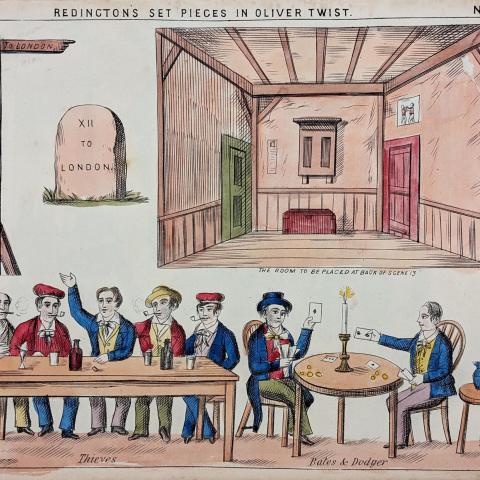 REDINGTON'S SET PIECES IN OLIVER TWIST.
N
TO LONDON
XII
TO
LONDON.
THE ROOM TO BE PLACED AT BACK OF SCENE 13
Thieves
Bates & Dodger